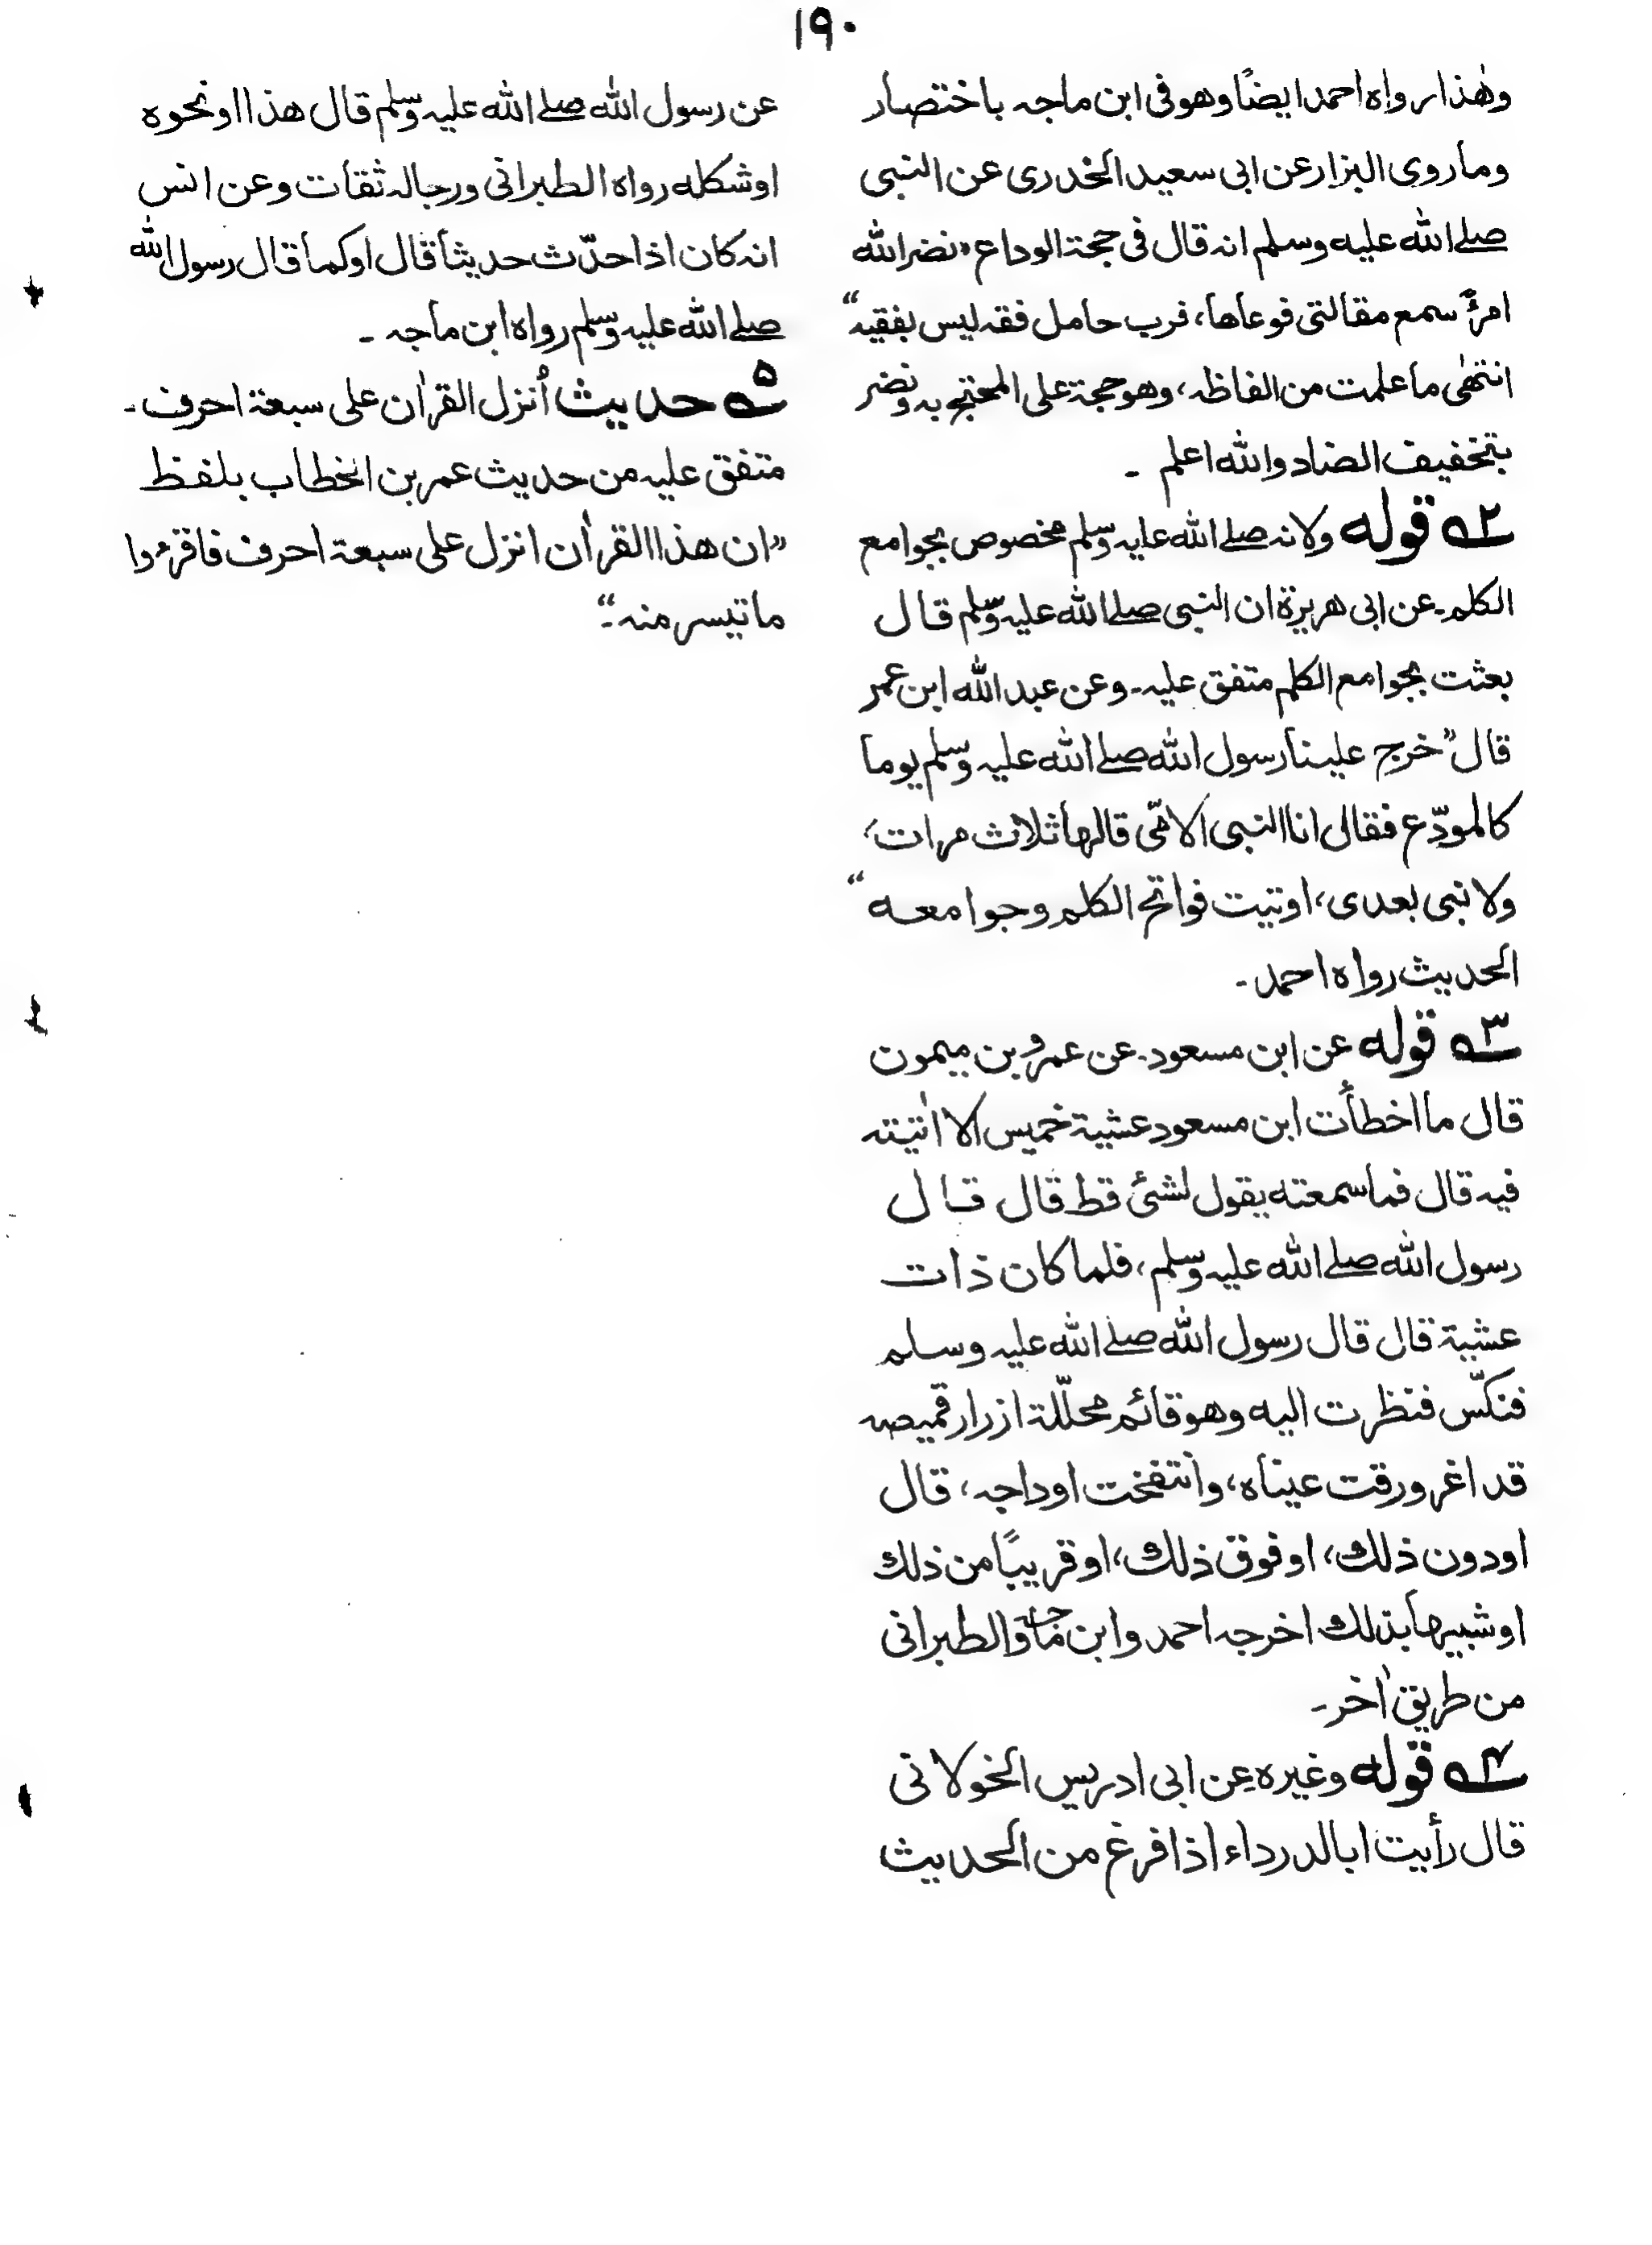 ١٩٠
وهٰذا رواه احمد ايضًا وهو فى ابن ماجه باختصار
وما روى البزار عن ابى سعيد الخدرى عن النبى
صلے الله عليه وسلم انه قال فى حجة الوداع "نضر الله
امرءً سمع مقالتى فوعاها، فرب حامل فقه ليس بفقيه"
انتهٰى ما علمت من الفاظه، وهو حجة على المحتج به ونضر
بتخفيف الضاد والله اعلم ۔
٢ـه قوله ولانه صلے الله عليه وسلم مخصوص بجوامع
الكلم۔ عن ابى هريرة ان النبى صلے الله عليه وسلم قال
بعثت بجوامع الكلم متفق عليه۔ وعن عبد الله ابن عمر
قال "خرج علينا رسول الله صلے الله عليه وسلم يوما
كالمودّع فقال انا النبى الامّى قالها ثلاث مرات،
ولا نبى بعدى، اوتيت فواتح الكلم وجوامعه"
الحديث رواه احمد۔
٣ـه قوله عن ابن مسعود۔ عن عمرو بن ميمون
قال ما اخطأت ابن مسعود عشية خميس الا اٰتيته
فيه قال فما سمعته يقول لشئ قط قال قال
رسول الله صلے الله عليه وسلم، فلما كان ذات
عشية قال قال رسول الله صلے الله عليه وسلم
فنكّس فنظرت اليه وهو قائم محلّلة ازرار قميصه
قد اغرورقت عيناه، وانتفخت اوداجه، قال
او دون ذلك، او فوق ذلك، او قريبًا من ذلك
او شبيها بذلك اخرجه احمد وابن ماجه والطبرانى
من طريق اٰخر۔
٤ـه قوله وغيره عن ابى ادريس الخولانى
قال رأيت ابا الدرداء اذا فرغ من الحديث
عن رسول الله صلے الله عليه وسلم قال هذا او نحوه
او شكله رواه الطبرانى ورجاله ثقات وعن انس
انه كان اذا حدّث حديثا قال او كما قال رسول الله
صلے الله عليه وسلم رواه ابن ماجه ۔
٥ـه حديث اُنزل القراٰن على سبعة احرف۔
متفق عليه من حديث عمر بن الخطاب بلفظ
"ان هذا القراٰن انزل على سبعة احرف فاقرءوا
ما تيسر منه۔"